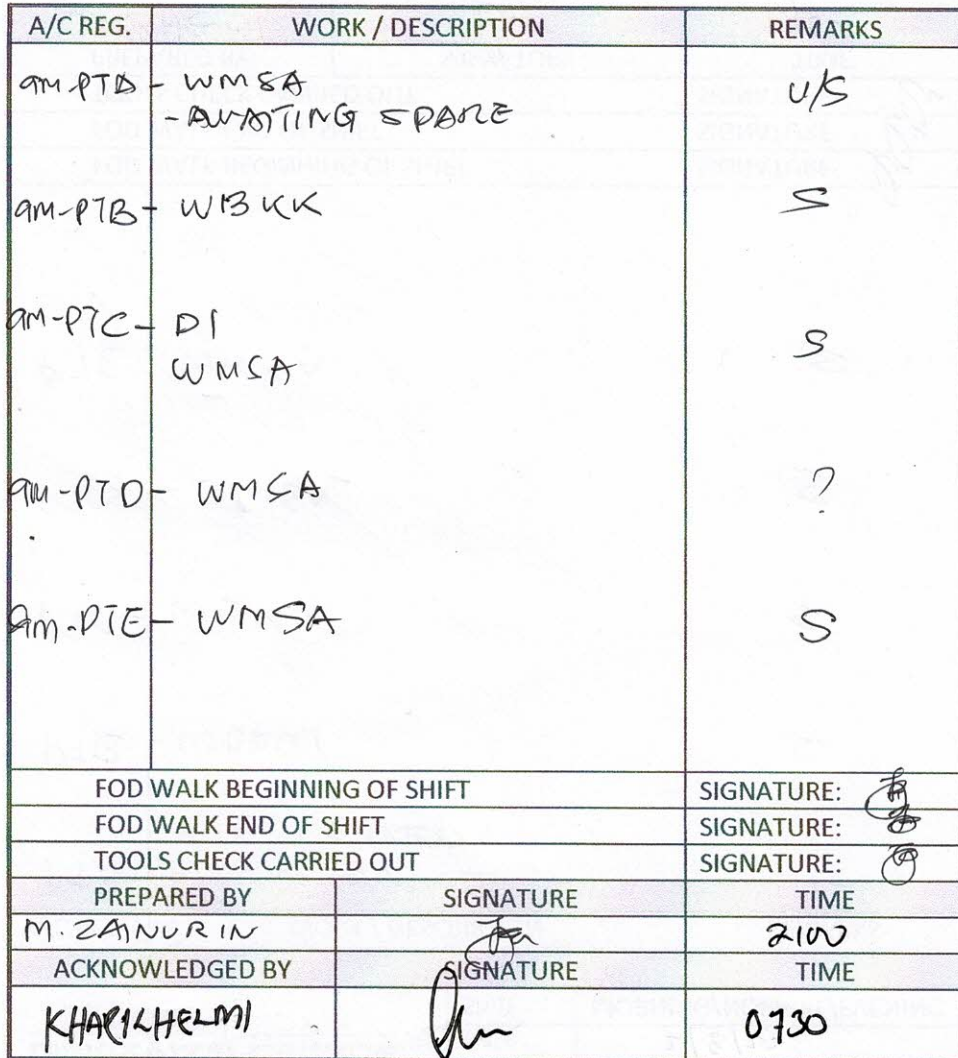 A/C REG. WORK / DESCRIPTION REMARKS
9M-PTA - WMSA U/S
- AWATING SPARE
9M-PTB - WBKK S
9M-PTC - DI S
WMSA
9M-PTD - WMSA ?
9M-PTE - WMSA S
FOD WALK BEGINNING OF SHIFT SIGNATURE:
FOD WALK END OF SHIFT SIGNATURE:
TOOLS CHECK CARRIED OUT SIGNATURE:
PREPARED BY SIGNATURE TIME
M. ZAINURIN 2100
ACKNOWLEDGED BY SIGNATURE TIME
KHARILHELMI 0730